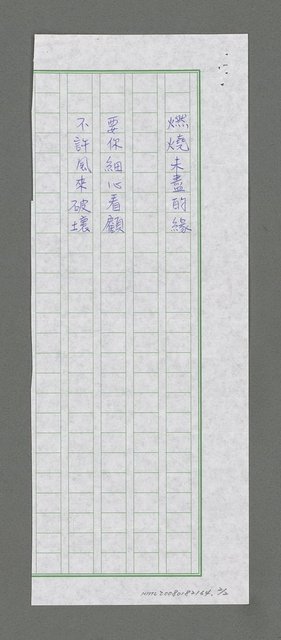 燃燒未盡的緣
要你細心看顧
不許風來破壞
NML20080182164, 2/2